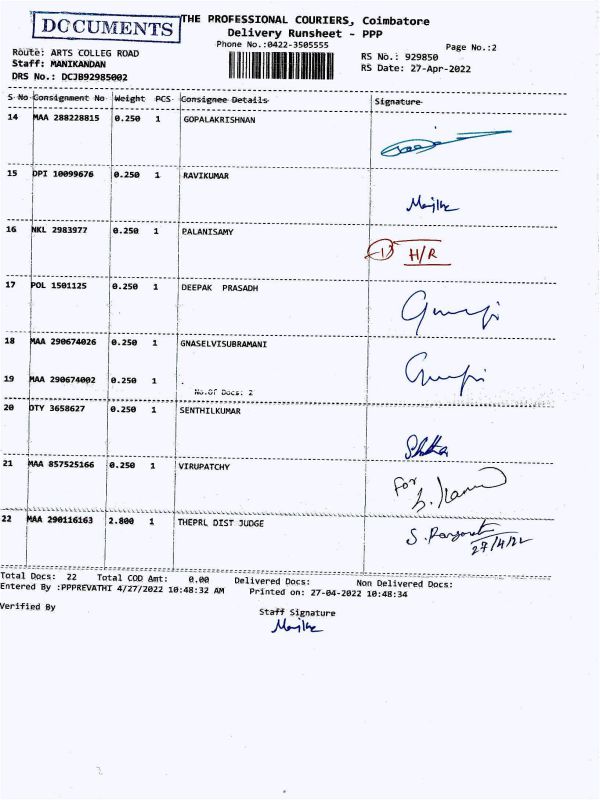 DOCUMENTS
THE PROFESSIONAL COURIERS, Coimbatore
Delivery Runsheet - PPP
Phone No.:0422-3505555
Page No.:2
Route: ARTS COLLEG ROAD
RS No.: 929850
Staff: MANIKANDAN
RS Date: 27-Apr-2022
DRS No.: DCJB92985002
S No Consignment No Weight PCS Consignee Details Signature
14 MAA 288228815 0.250 1 GOPALAKRISHNAN
15 DPI 10099676 0.250 1 RAVIKUMAR
16 NKL 2983977 0.250 1 PALANISAMY
1 H/R
17 POL 1501125 0.250 1 DEEPAK PRASADH
18 MAA 290674026 0.250 1 GNASELVISUBRAMANI
19 MAA 290674002 0.250 1 .
No.Of Docs: 2
20 OTY 3658627 0.250 1 SENTHILKUMAR
21 MAA 857525166 0.250 1 VIRUPATCHY
For
22 MAA 290116163 2.800 1 THEPRL DIST JUDGE
27/4/22
Total Docs: 22 Total COD Amt: 0.00 Delivered Docs: Non Delivered Docs:
Entered By :PPPREVATHI 4/27/2022 10:48:32 AM Printed on: 27-04-2022 10:48:34
Verified By
Staff Signature